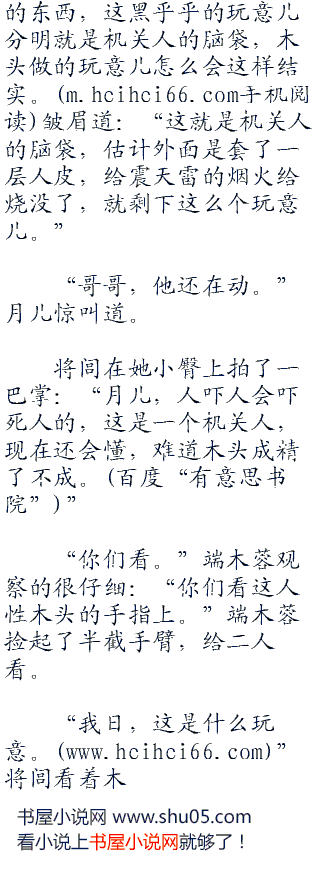 的东西，这黑乎乎的玩意儿
分明就是机关人的脑袋，木
头做的玩意儿怎么会这样结
实。(m.hcihci66.com手机阅
读)皱眉道：“这就是机关人
的脑袋，估计外面是套了一
层人皮，给震天雷的烟火给
烧没了，就剩下这么个玩意
儿。”
“哥哥，他还在动。”
月儿惊叫道。
将闾在她小臀上拍了一
巴掌：“月儿，人吓人会吓
死人的，这是一个机关人，
现在还会懂，难道木头成精
了不成。(百度“有意思书
院”)”
“你们看。”端木蓉观
察的很仔细：“你们看这人
性木头的手指上。”端木蓉
捡起了半截手臂，给二人
看。
“我日，这是什么玩
意。(www.hcihci66.com)”
将闾看着木
书屋小说网 www.shu05.com
看小说上书屋小说网就够了！